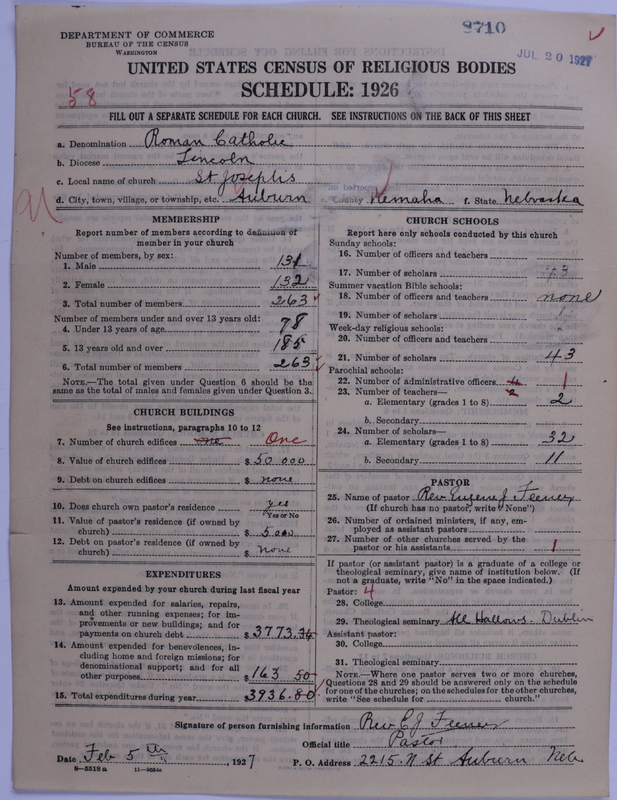 DEPARTMENT OF COMMERCE
BUREAU OF THE CENSUS
WASHINGTON
8710
JUL 20 1927
UNITED STATES CENSUS OF RELIGIOUS BODIES
SCHEDULE: 1926
58
FILL OUT A SEPARATE SCHEDULE FOR EACH CHURCH. SEE INSTRUCTIONS ON THE BACK OF THIS SHEET
a. Denomination Roman Catholic
b. Diocese Lincoln
c. Local name of church St Joseph's
d. City, town, village, or township, etc. Auburn e. County Nemaha f. State Nebraska
91
MEMBERSHIP
Report number of members according to definition of
member in your church
Number of members, by sex:
1. Male 131
2. Female 132
3. Total number of members 263
Number of members under and over 13 years old:
4. Under 13 years of age 78
5. 13 years old and over 185
6. Total number of members 263
NOTE.—The total given under Question 6 should be the
same as the total of males and females given under Question 3.
CHURCH BUILDINGS
See instructions, paragraphs 10 to 12
7. Number of church edifices one One
8. Value of church edifices $ 50 000
9. Debt on church edifices $ none
10. Does church own pastor's residence yes
Yes or No
11. Value of pastor's residence (if owned by
church) $ 5 000
12. Debt on pastor's residence (if owned by
church) $ none
EXPENDITURES
Amount expended by your church during last fiscal year
13. Amount expended for salaries, repairs,
and other running expenses; for im-
provements or new buildings; and for
payments on church debt $ 3773.
14. Amount expended for benevolences, in-
cluding home and foreign missions; for
denominational support; and for all
other purposes $ 163 50
15. Total expenditures during year $ 3936.80
CHURCH SCHOOLS
Report here only schools conducted by this church
Sunday schools:
16. Number of officers and teachers
17. Number of scholars 43
Summer vacation Bible schools:
18. Number of officers and teachers none
19. Number of scholars
Week-day religious schools:
20. Number of officers and teachers
21. Number of scholars 43
Parochial schools:
22. Number of administrative officers 1
23. Number of teachers— 2
a. Elementary (grades 1 to 8) 2
b. Secondary
24. Number of scholars—
a. Elementary (grades 1 to 8) 32
b. Secondary 11
PASTOR
25. Name of pastor Rev Eugene J Feener
(If church has no pastor, write "None")
26. Number of ordained ministers, if any, em-
ployed as assistant pastors
27. Number of other churches served by the
pastor or his assistants 1
If pastor (or assistant pastor) is a graduate of a college or
theological seminary, give name of institution below. (If
not a graduate, write "No" in the space indicated.)
Pastor: 4
28. College
29. Theological seminary All Hallows. Dublin
Assistant pastor:
30. College
31. Theological seminary
NOTE.—Where one pastor serves two or more churches,
Questions 28 and 29 should be answered only on the schedule
for one of the churches; on the schedules for the other churches,
write "See schedule for church."
Signature of person furnishing information Rev E J Feener
Official title Pastor
Date Feb 5th, 1927 P. O. Address 2215. N St Auburn Neb
8—5518a